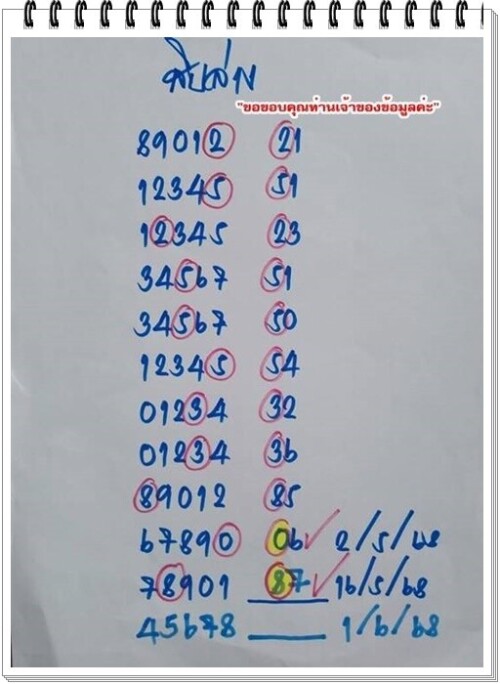 สิบล่าง
"ขอขอบคุณท่านเจ้าของข้อมูลค่ะ"
89012 21
12345 51
12345 23
34567 51
34567 50
12345 54
01234 32
01234 36
89012 85
67890 06 ✓ 2/5/68
78901 87 ✓ 16/5/68
45678 ___ 1/6/68